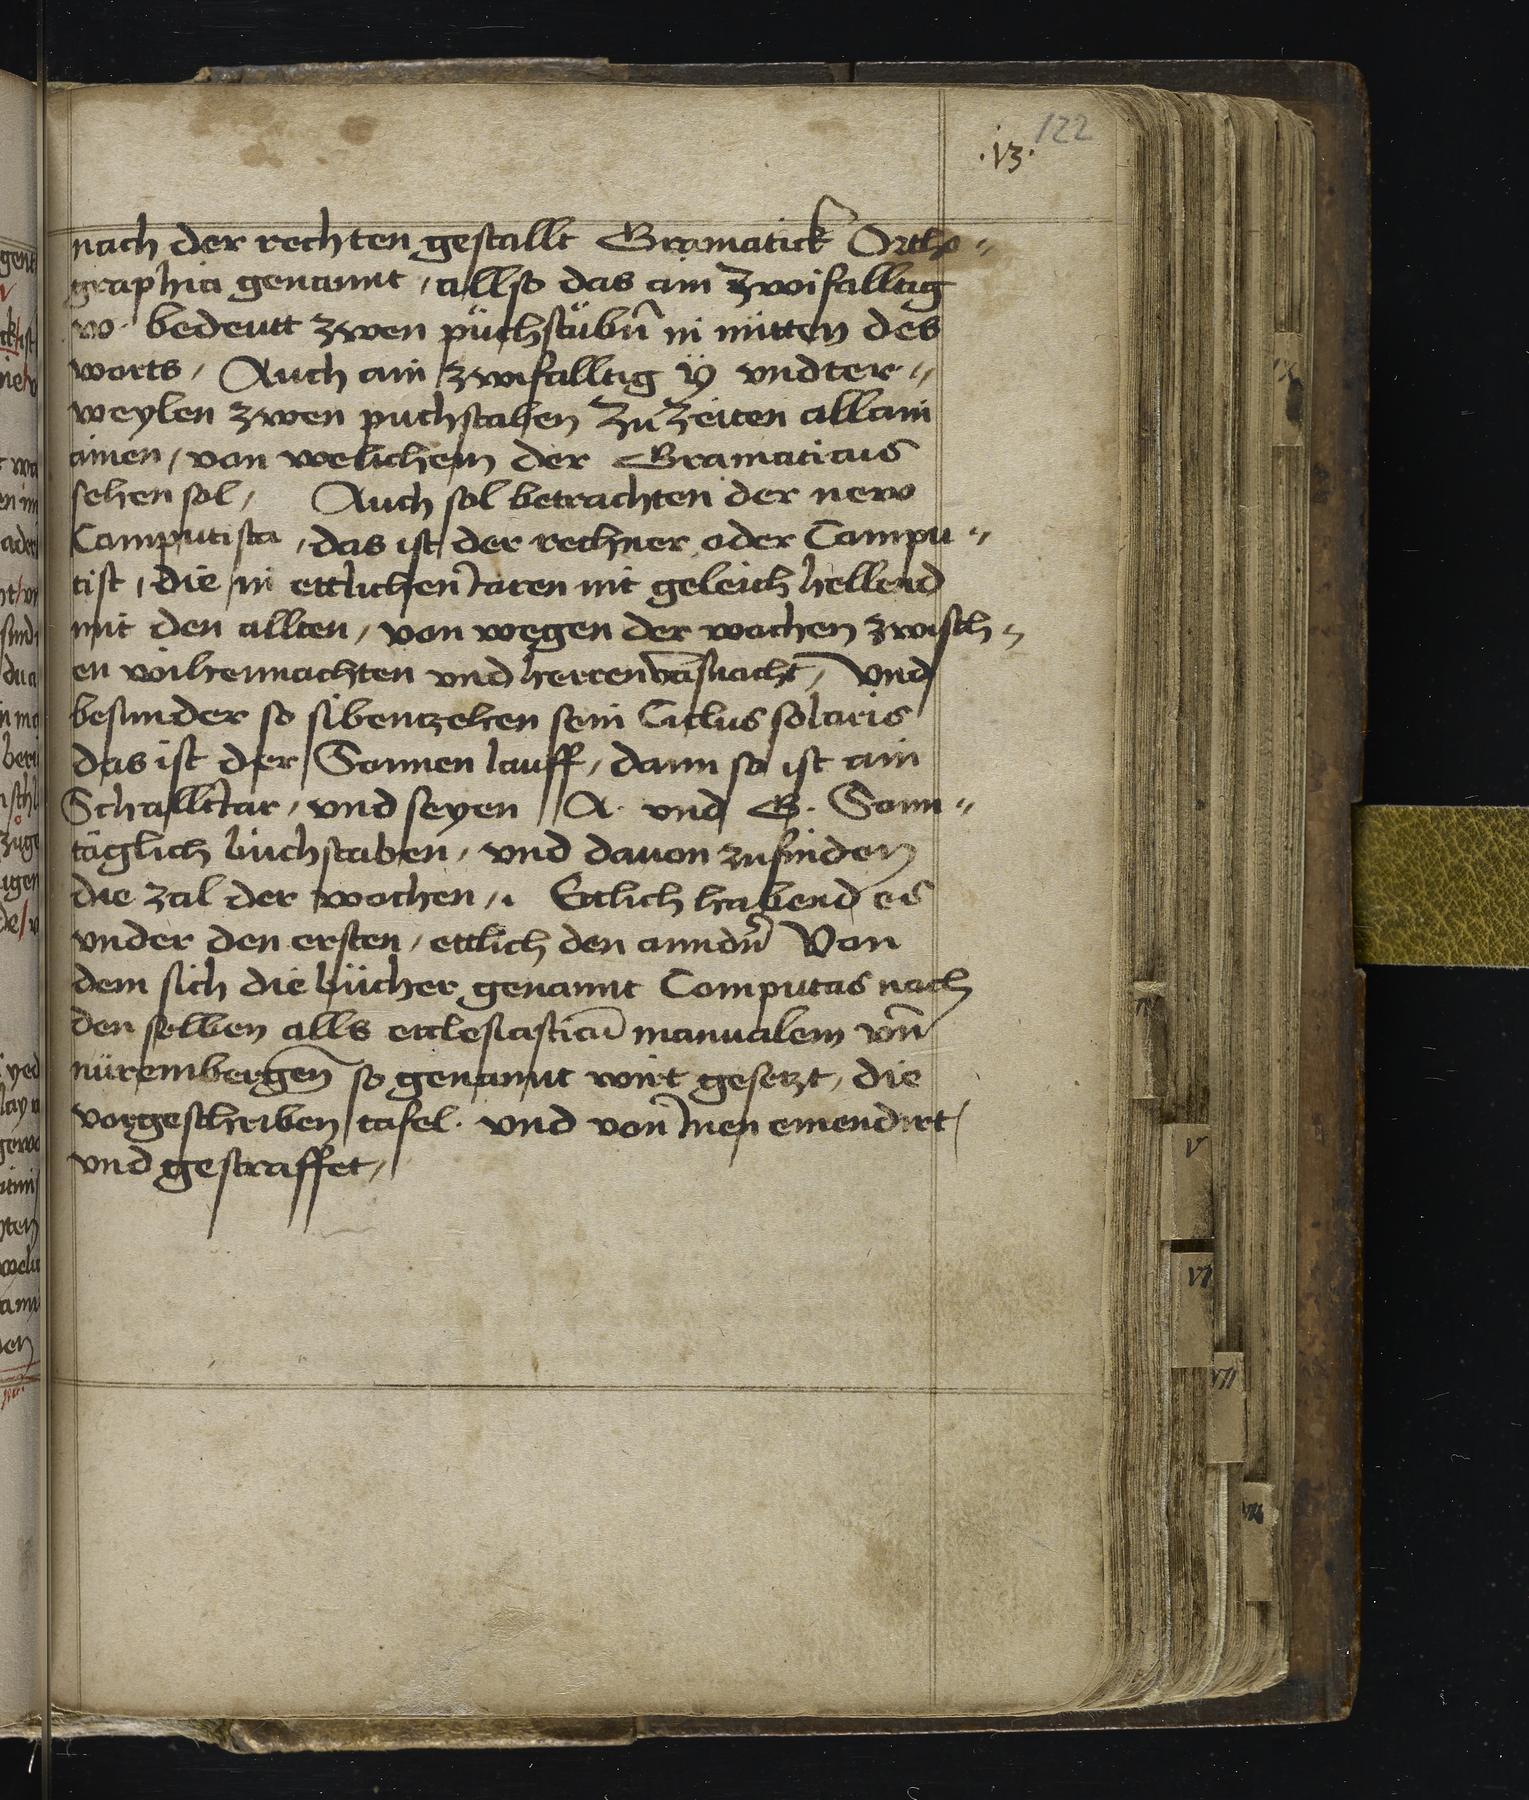 122
.13.
nach der rechten gestallt Gramatick Ortho-
graphia genannt, allso das ain zwifalltig
w. bedeutt zwen püchstäbn̄ in mitten des
worts, Auch ain zwifalltig ÿ vndter-
weylen zwen puchstaben zu zeiten allain
ainen, von welichem der Gramaticus
sehen sol, Auch sol betrachten der new
Computista, das ist der rechner oder Compu-
tist, die in ettlichen Jaren nit geleich hellend
mit den allten, von wegen der wochen zwisch-
en weihennachten vnd herren vasnacht, Vnd
besunder so sibentzehen sein Ciclus solaris
das ist der Sonnen lauff, dann so ist ain
Schalltiar, vnd seyen A. vnd G. Sonn-
täglich büchstaben, vnd dauon zufinden
die zal der wochen, Ettlich habend es
vnder den ersten, ettlich den anndn̄ Von
dem sich die bücher genannt Computas nach
den selben alls ecclesiasticū manualem vn̄
nürembergen̄ so genannt wirt gesetzt, die
vorgeschriben tafel. vnd von Inen emendirt
vnd gestraffet,
V
VI
VII